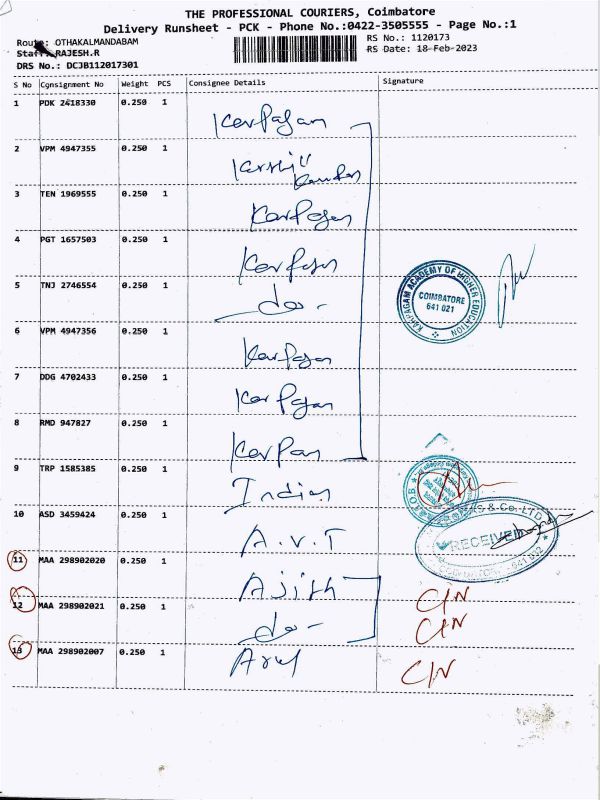 THE PROFESSIONAL COURIERS, Coimbatore
Delivery Runsheet - PCK - Phone No.:0422-3505555 - Page No.:1
Route: OTHAKALMANDABAM
RS No.: 1120173
Staff: RAJESH.R
RS Date: 18-Feb-2023
DRS No.: DCJB112017301
S No Cgnsignment No Weight PCS Consignee Details Signature
1 PDK 2418330 0.250 1 Karpagam
2 VPM 4947355 0.250 1
3 TEN 1969555 0.250 1 Karpagam
4 PGT 1657503 0.250 1 Karpagam
5 TNJ 2746554 0.250 1 do-
KARPAGAM ACADEMY OF HIGHER EDUCATION
COIMBATORE
641 021
6 VPM 4947356 0.250 1 Karpagam
7 DDG 4702433 0.250 1 Karpagam
8 RMD 947827 0.250 1
9 TRP 1585385 0.250 1 Indian
10 ASD 3459424 0.250 1 A.V.T
& Co. LTD
RECEIVED
11 MAA 298902020 0.250 1 Ajith C/N
12 MAA 298902021 0.250 1 do- C/N
13 MAA 298902007 0.250 1 Arul C/N